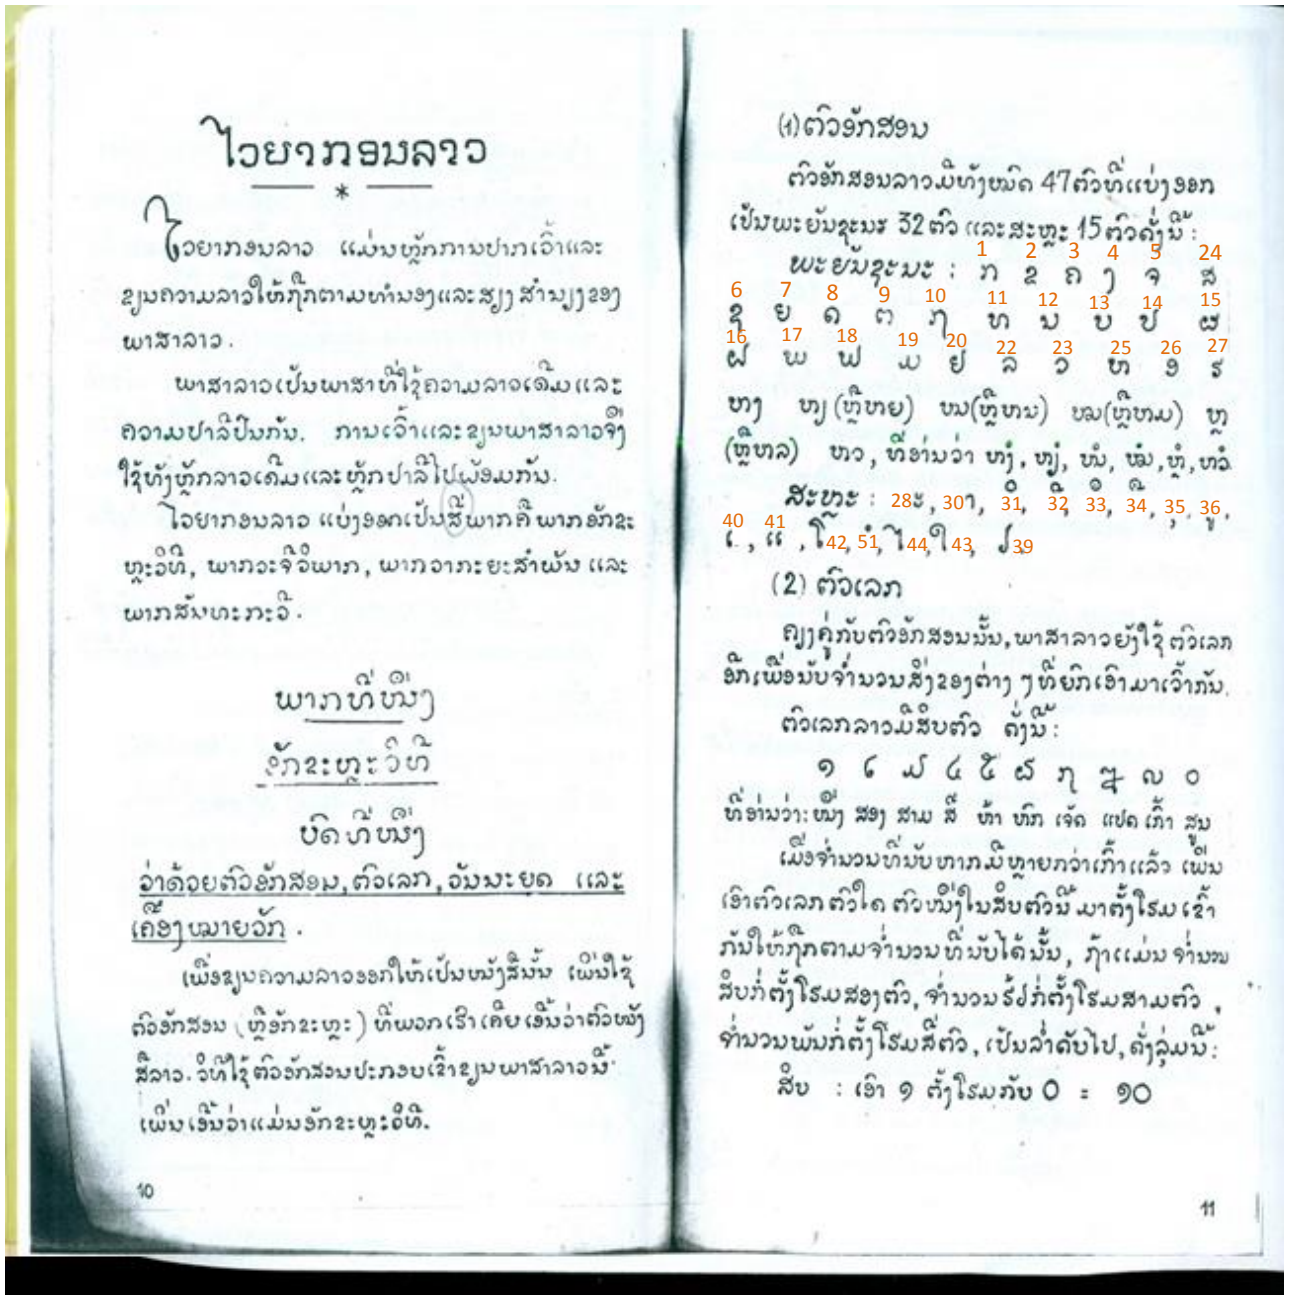 ໄວຍາກອນລາວ
*
ໄວຍາກອນລາວ ແມ່ນຫຼັກການປາກເວົ້າແລະ
ຂຽນຄວາມລາວໃຫ້ຖືກຕາມທຳນອງແລະສຽງສຳນຽງຂອງ
ພາສາລາວ.
ພາສາລາວເປັນພາສາທີ່ໃຊ້ຄວາມລາວເດີມແລະ
ຄວາມປາລີປົນກັນ. ການເວົ້າແລະຂຽນພາສາລາວຈຶ່ງ
ໃຊ້ທັງຫຼັກລາວເດີມແລະຫຼັກປາລີໄປພ້ອມກັນ.
ໄວຍາກອນລາວ ແບ່ງອອກເປັນສີ່ພາກຄື ພາກອັກຂະ
ຫຼະວິທີ, ພາກວະຈີວິພາກ, ພາກວາກະຍະສຳພັນ ແລະ
ພາກສັນທະກະວີ.
ພາກທີ່ໜຶ່ງ
ອັກຂະຫຼະວິທີ
ບົດທີ່ໜຶ່ງ
ວ່າດ້ວຍຕົວອັກສອນ, ຕົວເລກ, ວັນນະຍຸດ ແລະ
ເຄື່ອງໝາຍວັກ.
ເພື່ອຂຽນຄວາມລາວອອກໃຫ້ເປັນໜັງສືນັ້ນ ເພິ່ນໃຊ້
ຕົວອັກສອນ (ຫຼືອັກຂະຫຼະ) ທີ່ພວກເຮົາເຄີຍເອີ້ນວ່າຕົວໜັງ
ສືລາວ. ວິທີໃຊ້ຕົວອັກສອນປະກອບເຂົ້າຂຽນພາສາລາວນີ້
ເພິ່ນເອີ້ນວ່າແມ່ນອັກຂະຫຼະວິທີ.
10
(1) ຕົວອັກສອນ
ຕົວອັກສອນລາວມີທັງໝົດ 47 ຕົວທີ່ແບ່ງອອກ
ເປັນພະຍັນຊະນະ 32 ຕົວ ແລະສະຫຼະ 15 ຕົວດັ່ງນີ້:
1 2 3 4 5 24
ພະຍັນຊະນະ : ກ ຂ ຄ ງ ຈ ສ
6 7 8 9 10 11 12 13 14 15
ຊ ຍ ດ ຕ ຖ ທ ນ ບ ປ ຜ
16 17 18 19 20 22 23 25 26 27
ຝ ພ ຟ ມ ຢ ລ ວ ຫ ອ ຣ
ຫງ ຫຽ (ຫຼືຫຍ) ໜ (ຫຼືຫນ) ໝ (ຫຼືຫມ) ຫຼ
(ຫຼືຫລ) ຫວ, ທີ່ອ່ານວ່າ ຫງໍ, ຫຽໍ, ໜໍ, ໝໍ, ຫຼໍ, ຫວໍ.
ສະຫຼະ : 28ະ, 30າ, 31 ິ, 32 ີ, 33 ຶ, 34 ື, 35 ຸ, 36 ູ,
40 41
ເ, ແ, ໂ42, 51 ໍາ, ໄ44, ໃ43, ຽ39
(2) ຕົວເລກ
ຄຽງຄູ່ກັບຕົວອັກສອນນັ້ນ, ພາສາລາວຍັງໃຊ້ຕົວເລກ
ອີກເພື່ອນັບຈຳນວນສິ່ງຂອງຕ່າງ ໆ ທີ່ຍົກເອົາມາເວົ້າກັນ.
ຕົວເລກລາວມີສິບຕົວ ດັ່ງນີ້:
໑ ໒ ໓ ໔ ໕ ໖ ໗ ໘ ໙ ໐
ທີ່ອ່ານວ່າ: ໜຶ່ງ ສອງ ສາມ ສີ່ ຫ້າ ຫົກ ເຈັດ ແປດ ເກົ້າ ສູນ
ເມື່ອຈຳນວນທີ່ນັບຫາກມີຫຼາຍກວ່າເກົ້າແລ້ວ ເພິ່ນ
ເອົາຕົວເລກຕົວໃດ ຕົວໜຶ່ງໃນສິບຕົວນີ້ ມາຕັ້ງໂຮມເຂົ້າ
ກັນໃຫ້ຖືກຕາມຈຳນວນທີ່ນັບໄດ້ນັ້ນ, ຖ້າແມ່ນຈຳນວນ
ສິບກໍ່ຕັ້ງໂຮມສອງຕົວ, ຈຳນວນຮ້ອຽກໍ່ຕັ້ງໂຮມສາມຕົວ,
ຈຳນວນພັນກໍ່ຕັ້ງໂຮມສີ່ຕົວ, ເປັນລຳດັບໄປ, ດັ່ງລຸ່ມນີ້:
ສິບ : ເອົາ ໑ ຕັ້ງໂຮມກັບ 0 = ໑0
11